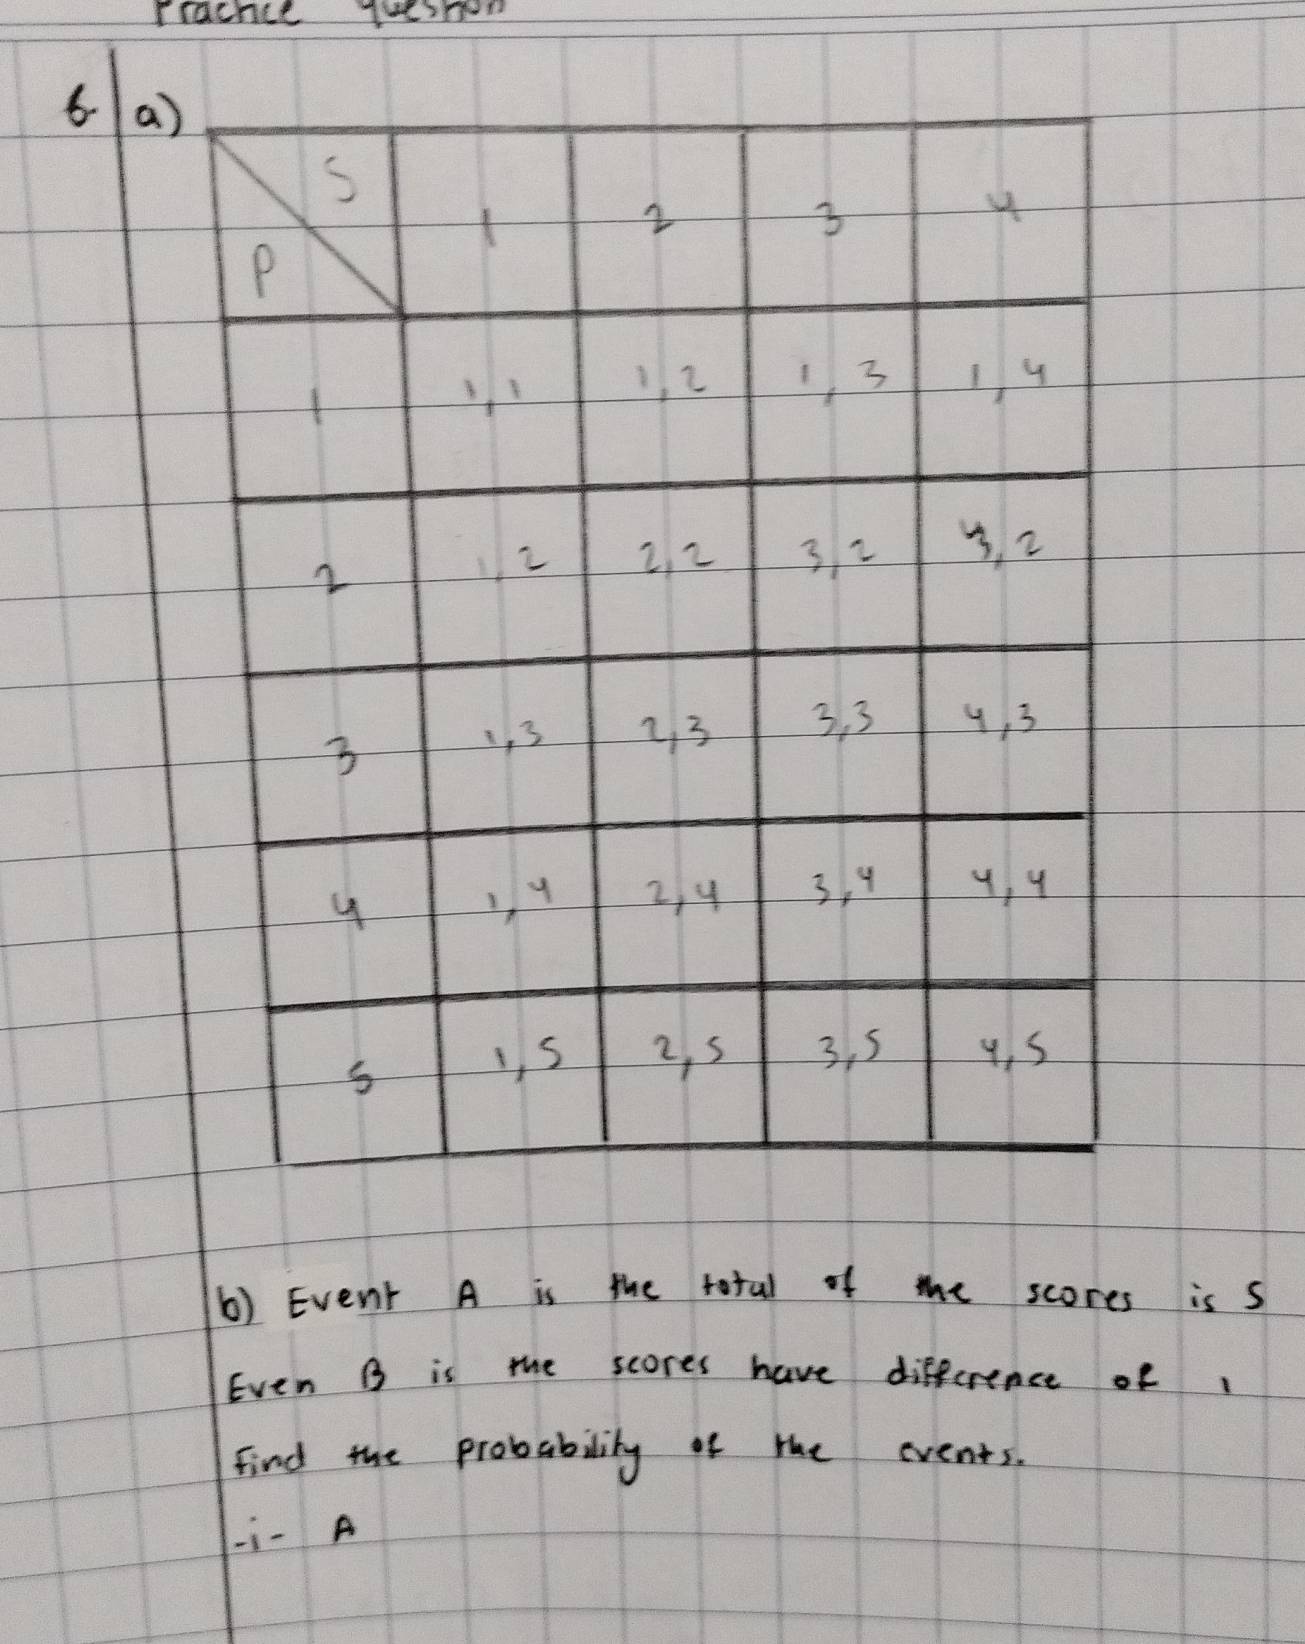 Practice question
6. a)
S
P 1 2 3 4
1 1,1 1,2 1,3 1,4
2 1,2 2,2 3,2 4,2
3 1,3 2,3 3,3 4,3
4 1,4 2,4 3,4 4,4
5 1,5 2,5 3,5 4,5
b) Event A is the total of the scores is 5
Even B is the scores have difference of 1
find the probability of the events.
-i- A